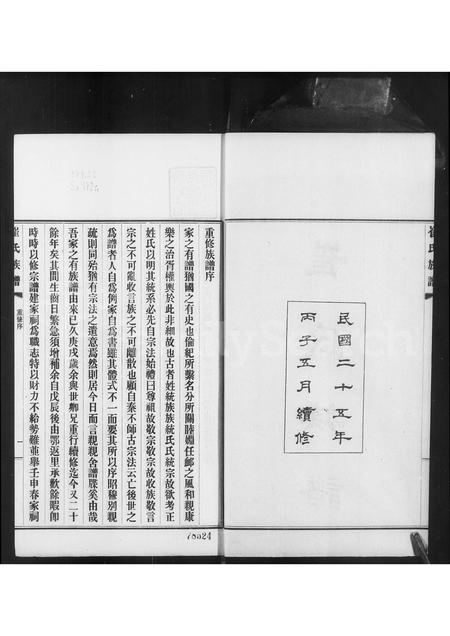 民國二十五年
丙子五月續修
崔氏族譜
重修族譜序
家之有譜猶國之有史也倫紀所繫名分所關睦婣任卹之風和親康
樂之治胥權輿於此非細故也古者姓統族族統氏氏統宗故欲考正
姓氏以明其統系必先自宗法始禮曰尊祖故敬宗敬宗故收族敬言
宗之不可亂收言族之不可離散也顧自秦不師古宗法云亡後世之
為譜者人自為例家自為書雖其體式不一而要其所以序昭穆別親
疏則同殆猶有宗法之遺意焉然則居今日而言親親舍譜牒奚由哉
吾家之有族譜由來已久庚戌歲余與世卿兄重行續修迄今又二十
餘年矣其間生齒日繁急須增補余自戊辰後由鄂返里承歉餘暇卽
時時以修宗譜建家祠為職志特以財力不給勢難並舉壬申春家祠
崔氏族譜
重修序
一
78624